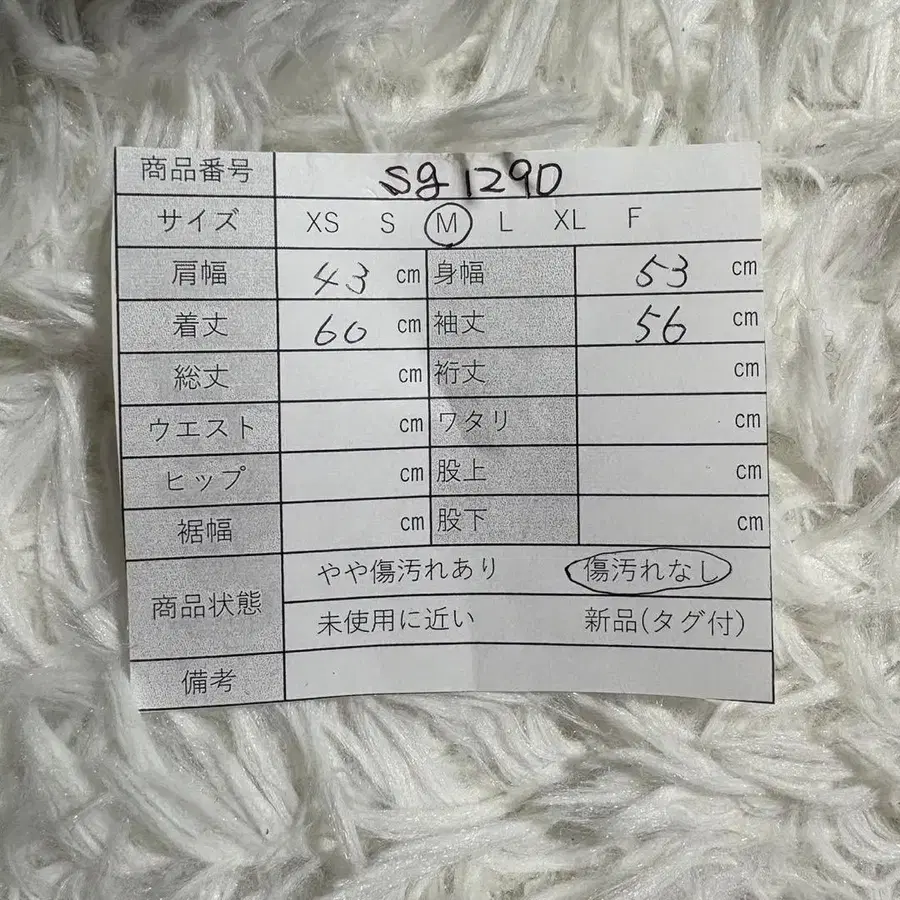 商品番号 sg 1290
サイズ XS S M L XL F
肩幅 43 cm 身幅 53 cm
着丈 60 cm 袖丈 56 cm
総丈 cm 裄丈 cm
ウエスト cm ワタリ cm
ヒップ cm 股上 cm
裾幅 cm 股下 cm
商品状態 やや傷汚れあり 傷汚れなし
未使用に近い 新品(タグ付)
備考